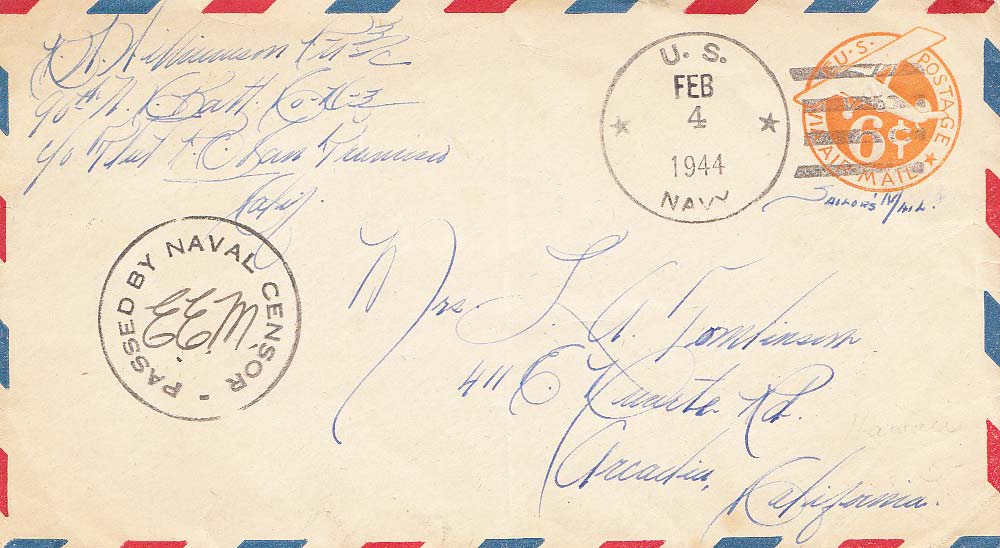 90th N. C. Batt. Co.
c/o Fleet P.O. San Francisco
Calif.
U. S.
FEB
4
1944
NAVY
U.S. POSTAGE
VIA AIR MAIL
6¢
Sailors' Mail.
PASSED BY NAVAL CENSOR
E.E.M.
Mrs. L. A. Tomlinson
411 E. Duarte Rd.
Arcadia,
California.